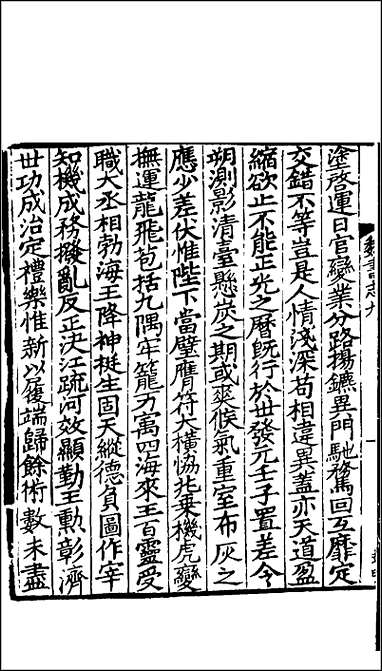 塗啓運日官變業分路揚鑣異門馳騖回互靡定
交錯不等豈是人情淺深苟相違異蓋亦天道盈
縮欲止不能正光之曆旣行於世發元壬子置差令
朔測影清臺懸炭之期或爽候氣重室布灰之
應少差伏惟陛下當璧膺符大横協兆乗機虎變
撫運龍飛包括九隅牢籠万寓四海來王百靈受
職大丞相勃海王降神挺生固天縱德負圖作宰
知機成務撥亂反正決江疏河效顯勤王勲彰濟
世功成治定禮樂惟新以履端歸餘術數未盡
魏書志九